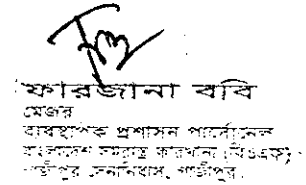 ফারজানা ববি
মেজর
ব্যবস্থাপক প্রশাসন পার্সোনেল
বাংলাদেশ সমরাস্ত্র কারখানা (বিওএফ)
গাজীপুর সেনানিবাস, গাজীপুর।